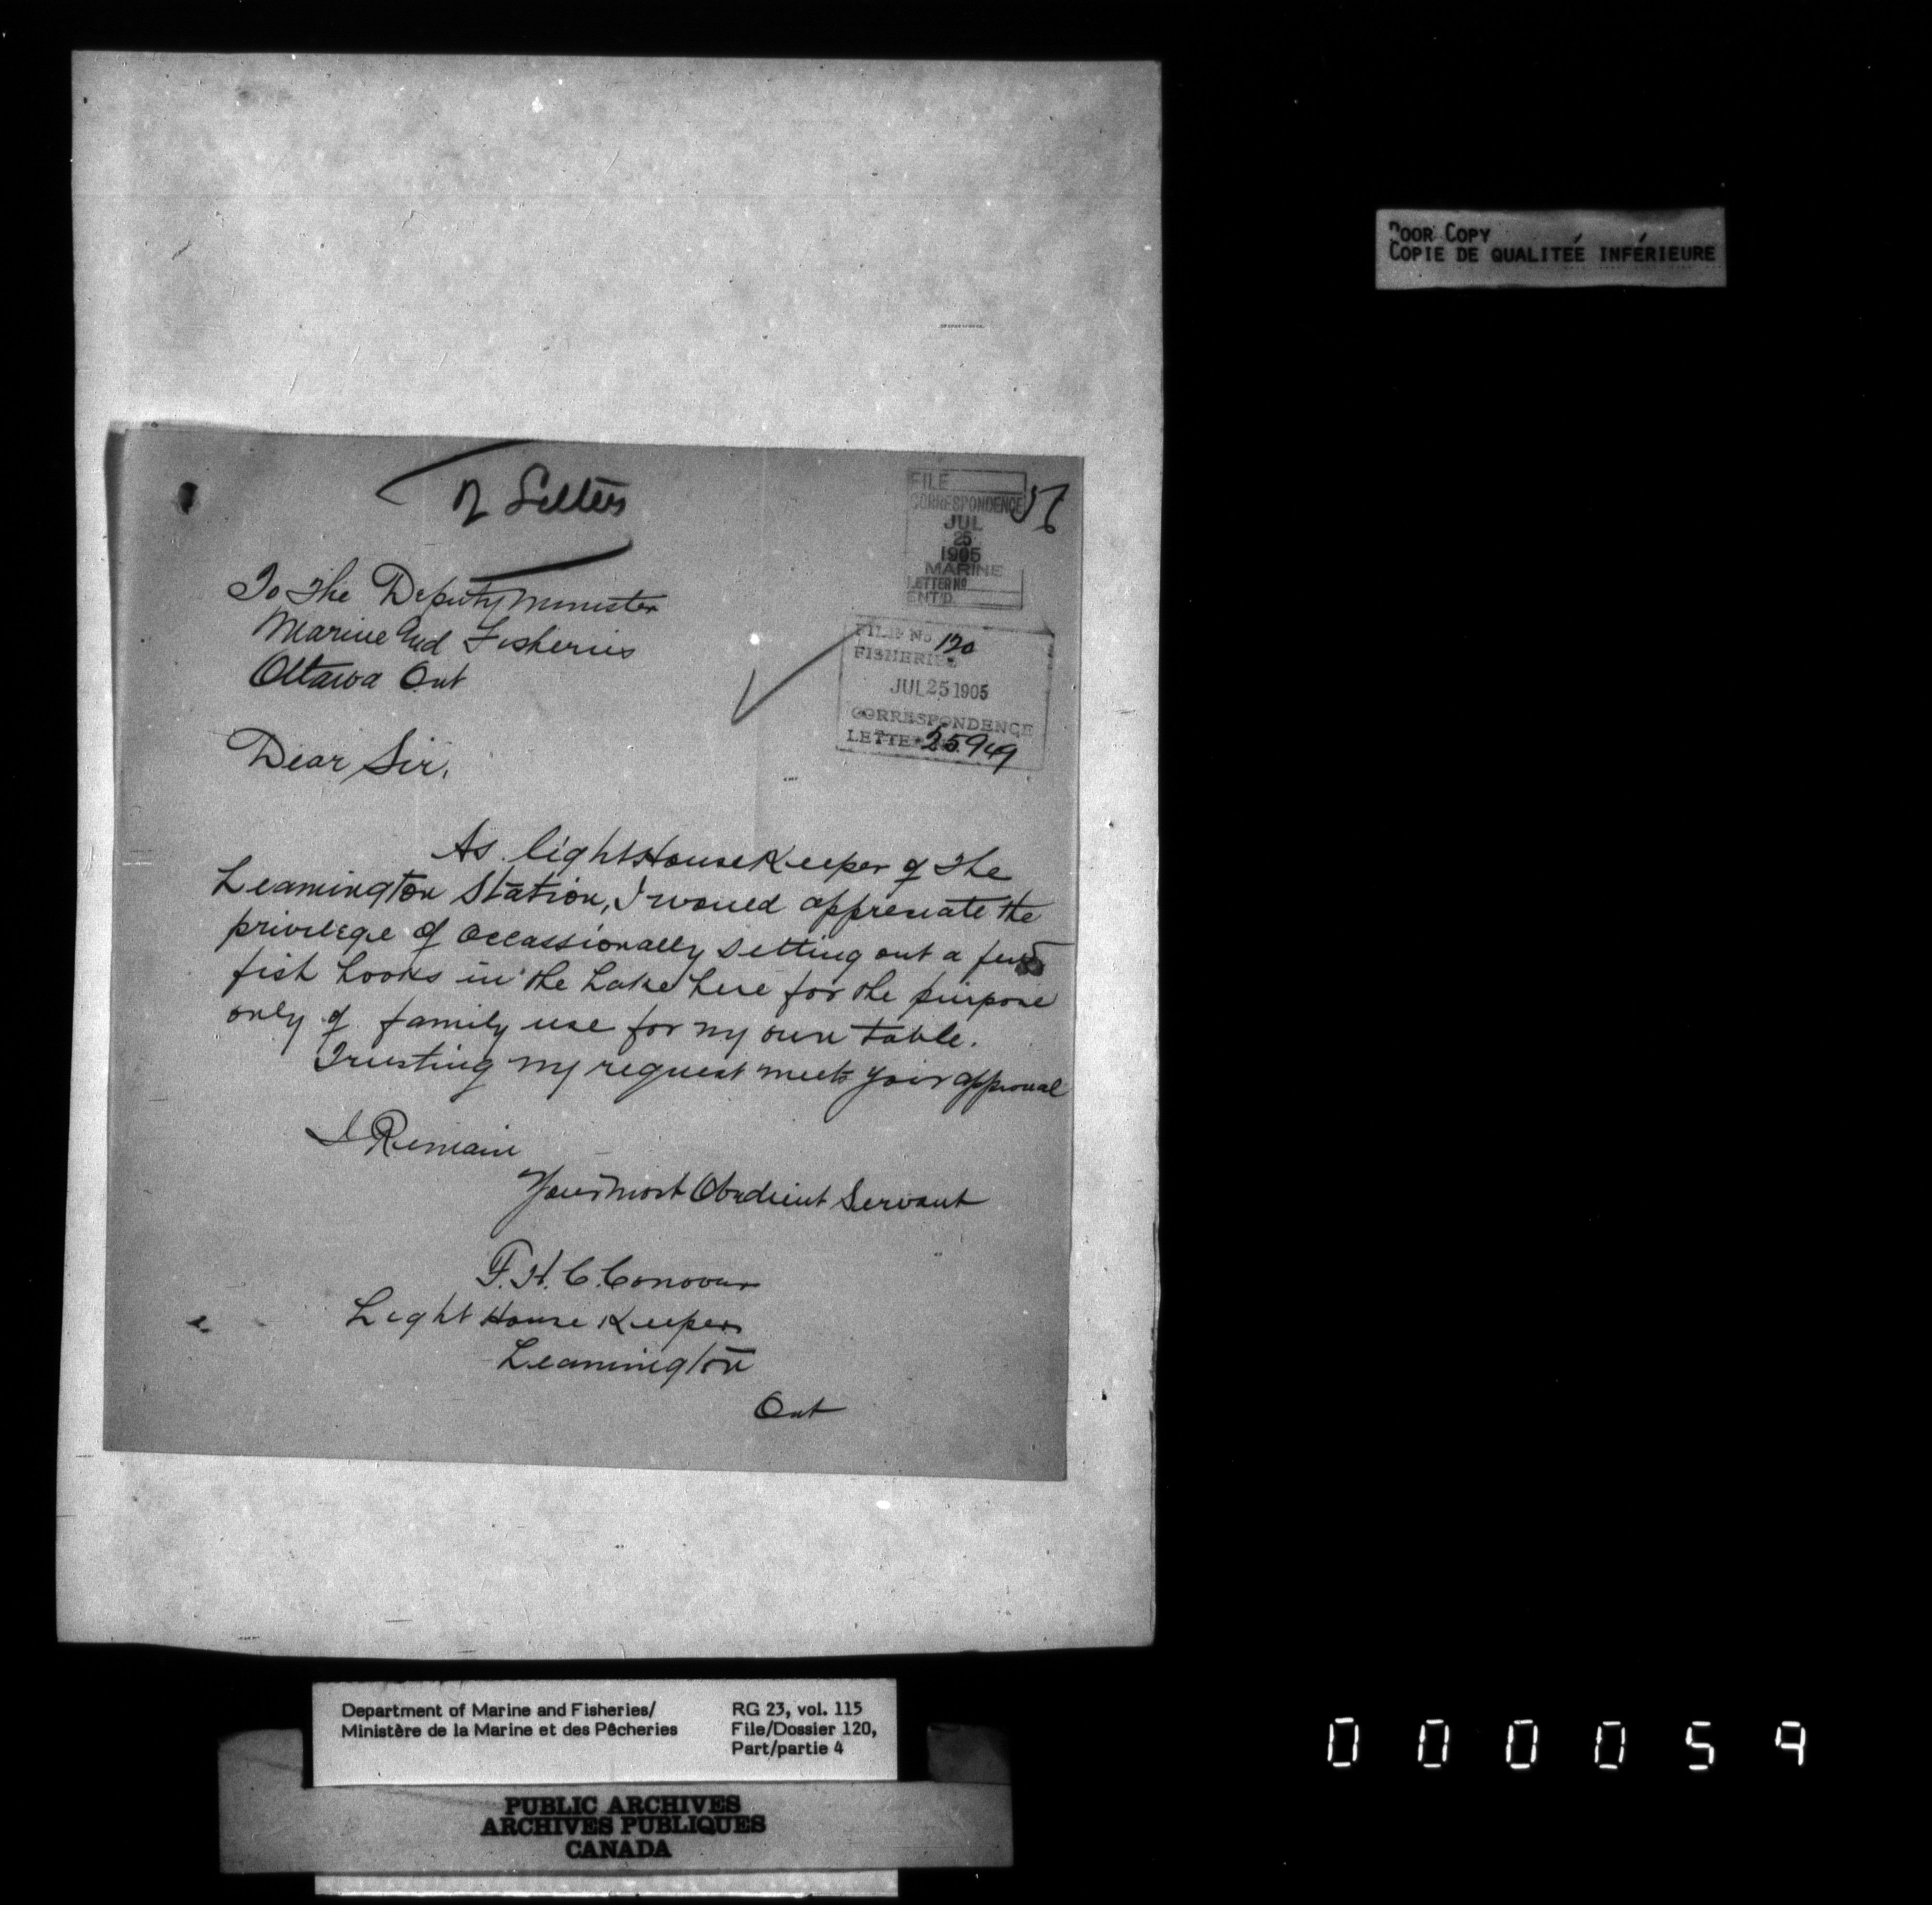 Poor Copy
Copie de qualiteé inférieure
Letters
FILE
CORRESPONDENCE
JUL
25
1905
MARINE
LETTER No
ENT'D.
56
To The Deputy Minister
Marine and Fisheries
Ottawa Ont
FILE No 120
FISHERIES
JUL 25 1905
CORRESPONDENCE
LETTER 25949
Dear Sir,
As lightHouseKeeper of the
Leamington Station, I would appreciate the
privilege of occassionally setting out a few
fish hooks in the Lake here for the purpose
only of family use for my own table.
Trusting my request meets your approval
I Remain
Your most Obedient Servant
F. H. C. Conover
Light House Keeper
Leamington
Ont
Department of Marine and Fisheries/
Ministère de la Marine et des Pêcheries
RG 23, vol. 115
File/Dossier 120,
Part/partie 4
PUBLIC ARCHIVES
ARCHIVES PUBLIQUES
CANADA
000059